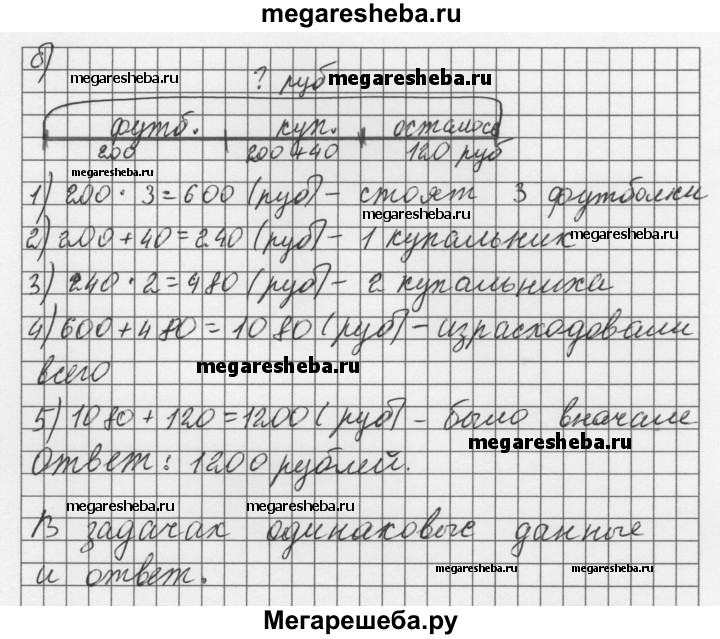 megaresheba.ru
б)
megaresheba.ru
? руб megaresheba.ru
футб. куп. осталось
200 200+40 120 руб
megaresheba.ru
1) 200 · 3 = 600 (руб) - стоят 3 футболки
megaresheba.ru
2) 200 + 40 = 240 (руб) - 1 купальник megaresheba.ru
3) 240 · 2 = 480 (руб) - 2 купальника
4) 600 + 480 = 1080 (руб) - израсходовали
всего megaresheba.ru
5) 1080 + 120 = 1200 (руб) - было вначале
megaresheba.ru
Ответ: 1200 рублей.
megaresheba.ru megaresheba.ru
В задачах одинаковые данные
и ответ. megaresheba.ru megaresheba.ru
Мегарешеба.ру